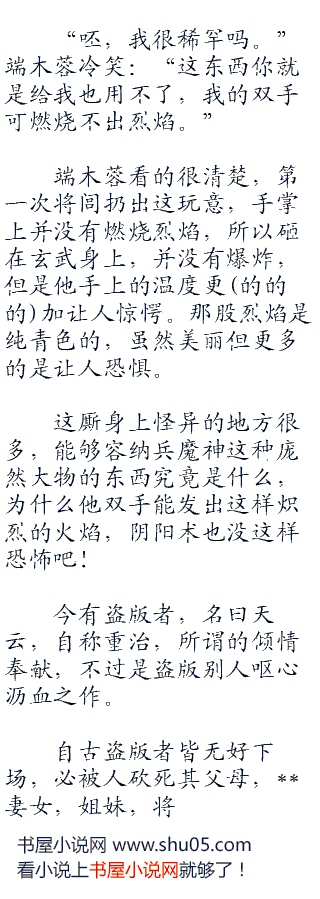 “呸，我很稀罕吗。”
端木蓉冷笑：“这东西你就
是给我也用不了，我的双手
可燃烧不出烈焰。”
端木蓉看的很清楚，第
一次将闾扔出这玩意，手掌
上并没有燃烧烈焰，所以砸
在玄武身上，并没有爆炸，
但是他手上的温度更(的的
的)加让人惊愕。那股烈焰是
纯青色的，虽然美丽但更多
的是让人恐惧。
这厮身上怪异的地方很
多，能够容纳兵魔神这种庞
然大物的东西究竟是什么，
为什么他双手能发出这样炽
烈的火焰，阴阳术也没这样
恐怖吧！
今有盗版者，名曰天
云，自称重治，所谓的倾情
奉献，不过是盗版别人呕心
沥血之作。
自古盗版者皆无好下
场，必被人砍死其父母，**
妻女，姐妹，将
书屋小说网 www.shu05.com
看小说上书屋小说网就够了！